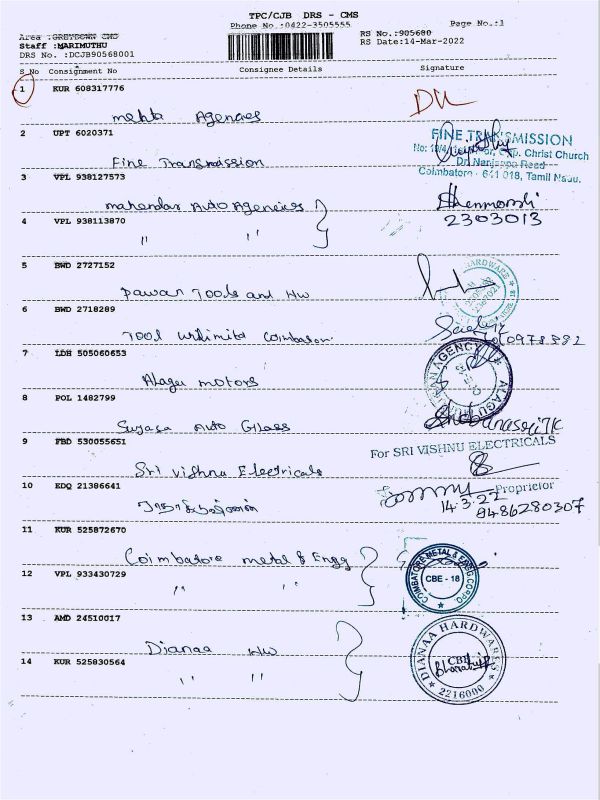 TPC/CJB DRS - CMS
Phone No.:0422-3505555 Page No.:1
Area :GREYDOWN CMD RS No.:905680
Staff :MARIMUTHU RS Date:14-Mar-2022
DRS No. :DCJB90568001
S No Consignment No Consignee Details Signature
1 KUR 608317776
Mehta Agencies
2 UPT 6020371 FINE TRANSMISSION
Christ Church
Fine Transmission Dr. Nanjappa Road
3 VPL 938127573 Coimbatore - 641 018, Tamil Nadu.
Mahendar Auto Agencies
4 VPL 938113870 2303013
" "
5 BWD 2727152
Pawan Tools and HW
6 BWD 2718289
Tool Unlimited Coimbatore
7 LDH 505060653
Alagu Motors
8 POL 1482799
Sujasa Auto Glass
9 FBD 530055651 For SRI VISHNU ELECTRICALS
Sri Vishnu Electricals
10 EDQ 21386641 Proprietor
14.3.22
8486280307
11 KUR 525872670
Coimbatore metal & Engg
COIMBATORE METAL & ENGG CORPO.
CBE - 18
12 VPL 933430729
" "
13 AMD 24510017
Dianaa HW
DIANAA HARDWARES
CBE
2216000
14 KUR 525830564
" "